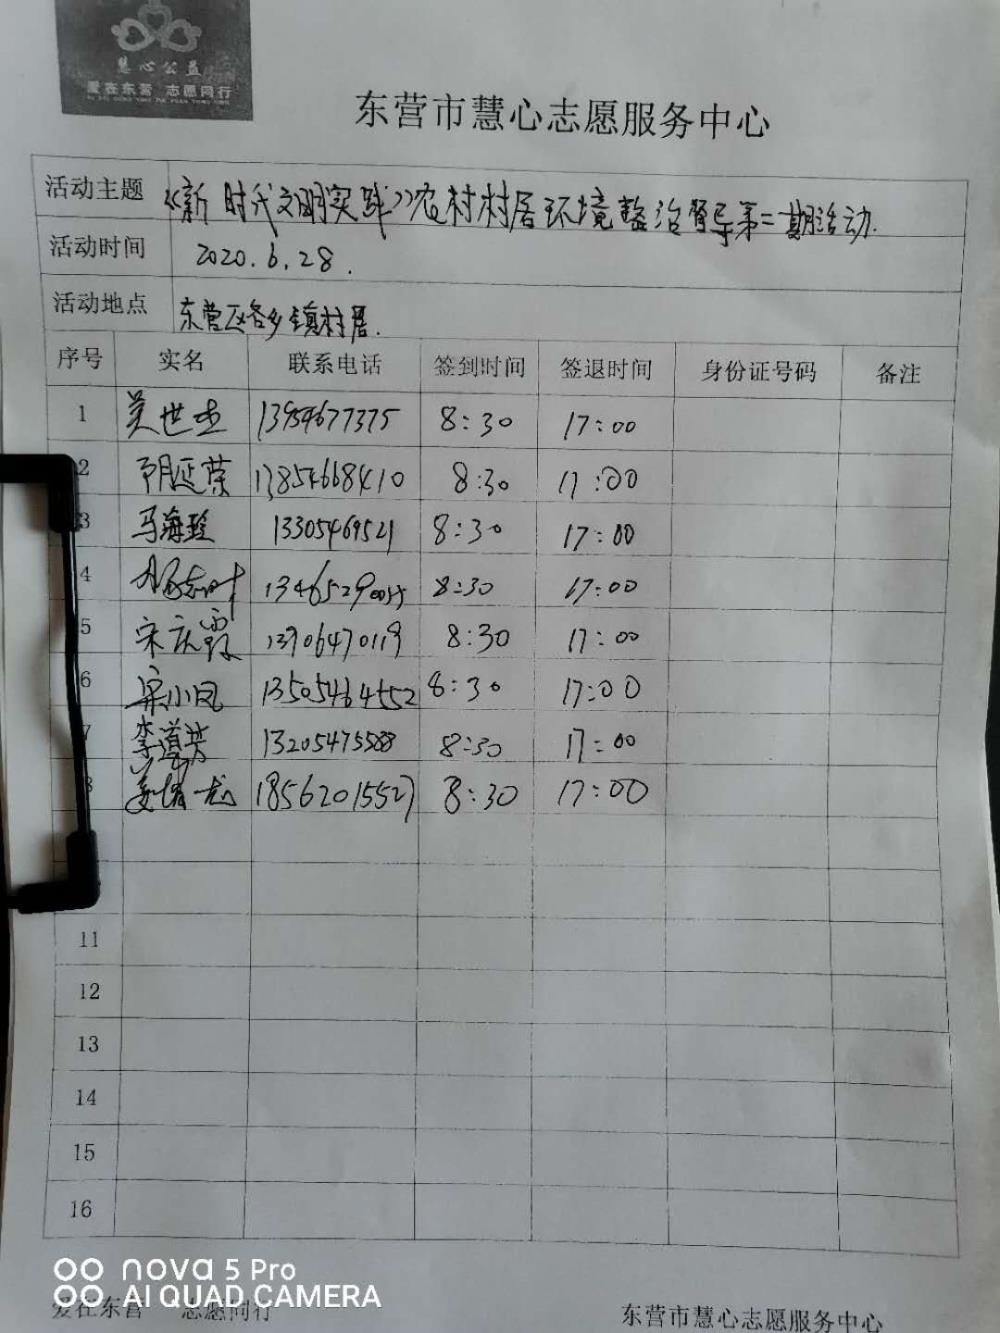 慧心公益
爱在东营 志愿同行
东营市慧心志愿服务中心
活动主题 《新时代文明实践》农村村居环境整治督导第二期活动.
活动时间 2020.6.28.
活动地点 东营区各乡镇村居.
序号 实名 联系电话 签到时间 签退时间 身份证号码 备注
1 吴世杰 13954677375 8:30 17:00
2 延荣 13854668410 8:30 17:00
3 马海珍 13305469521 8:30 17:00
4 8:30 17:00
5 宋庆霞 13906470119 8:30 17:00
6 宋小凤 13505464552 8:30 17:00
7 李道芳 13205475588 8:30 17:00
8 姜 18562015527 8:30 17:00
11
12
13
14
15
16
nova 5 Pro
AI QUAD CAMERA
爱在东营 志愿同行 东营市慧心志愿服务中心